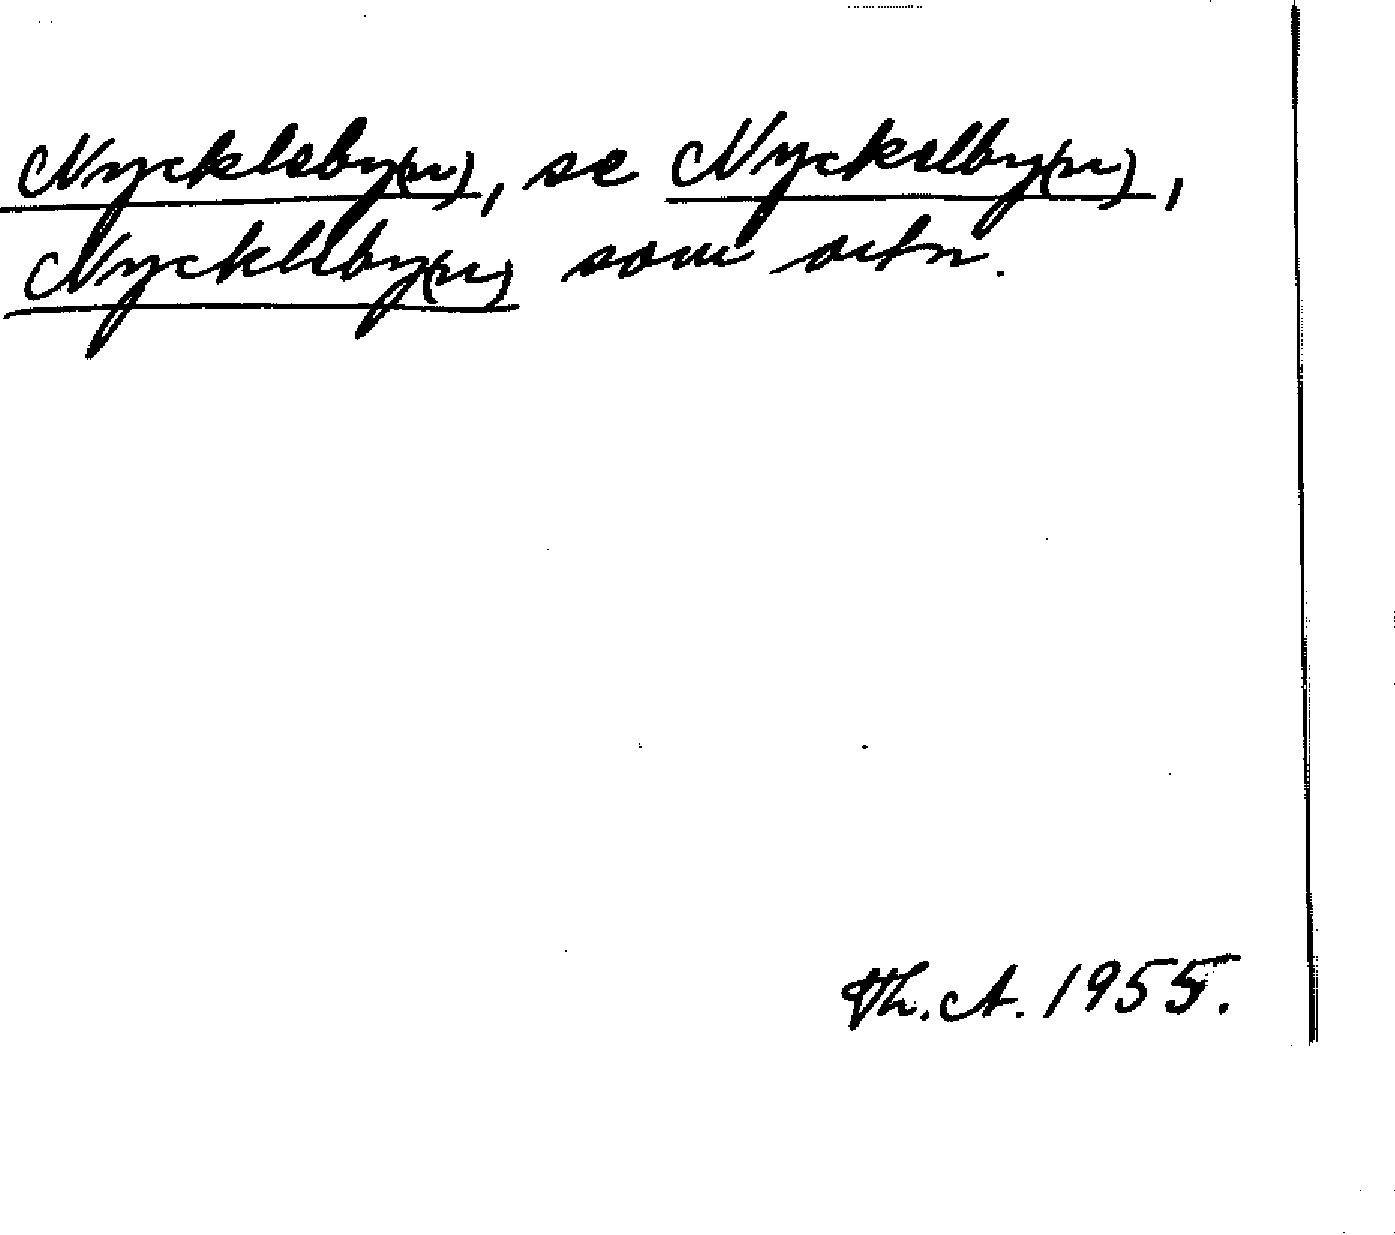 Nyckleby(n), se Nyckelby(n),
Nyckleby(n) som ortn.
Th. A. 1955.